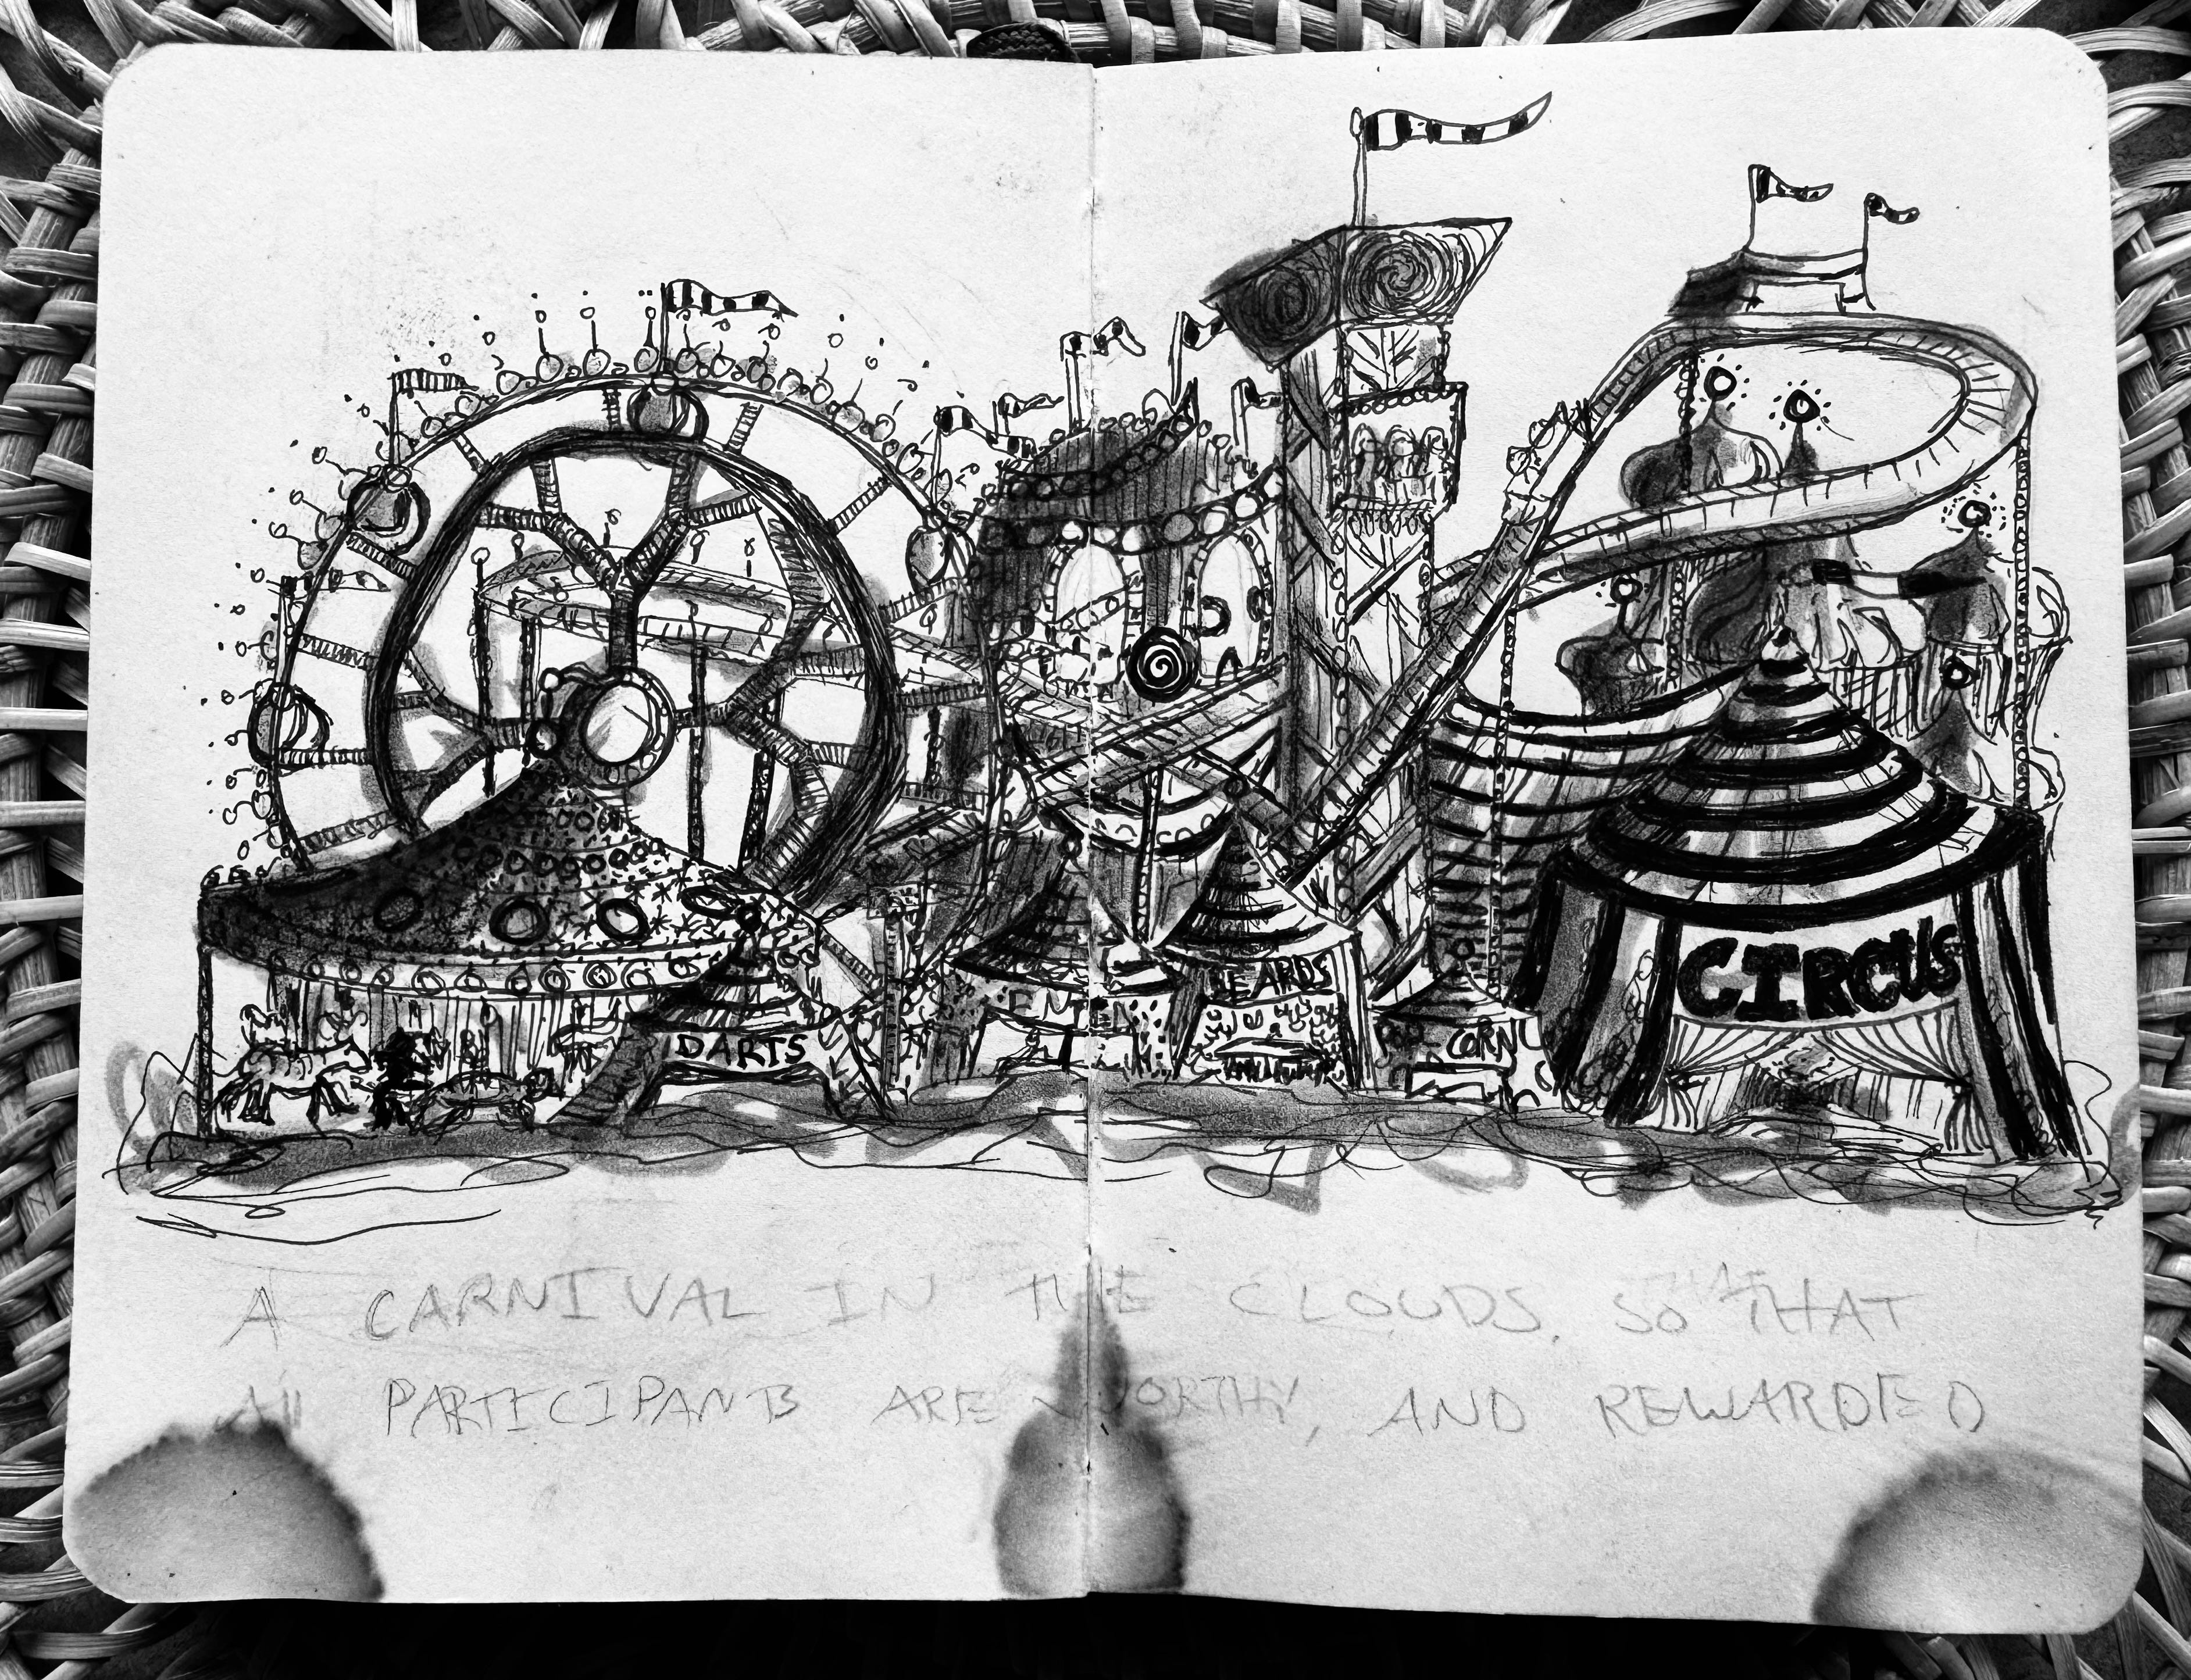 DARTS
EARDS
CORN
CIRCUS
A CARNIVAL IN THE CLOUDS, SO THAT
All PARTICIPANTS ARE WORTHY, AND REWARDED